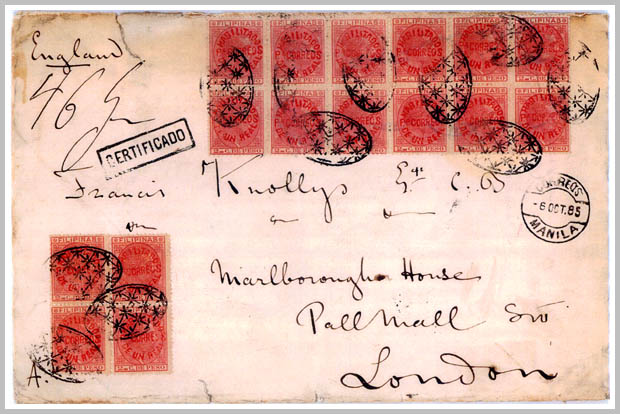 England
46 gr
CERTIFICADO
Francis Knollys Esqr C.B
CORREOS
-6 OCT.85
MANILA
Marlborough House
Pall Mall SW
London
A.
FILIPINAS
HABILITADO
CORREOS
UN REAL
C. DE PESO